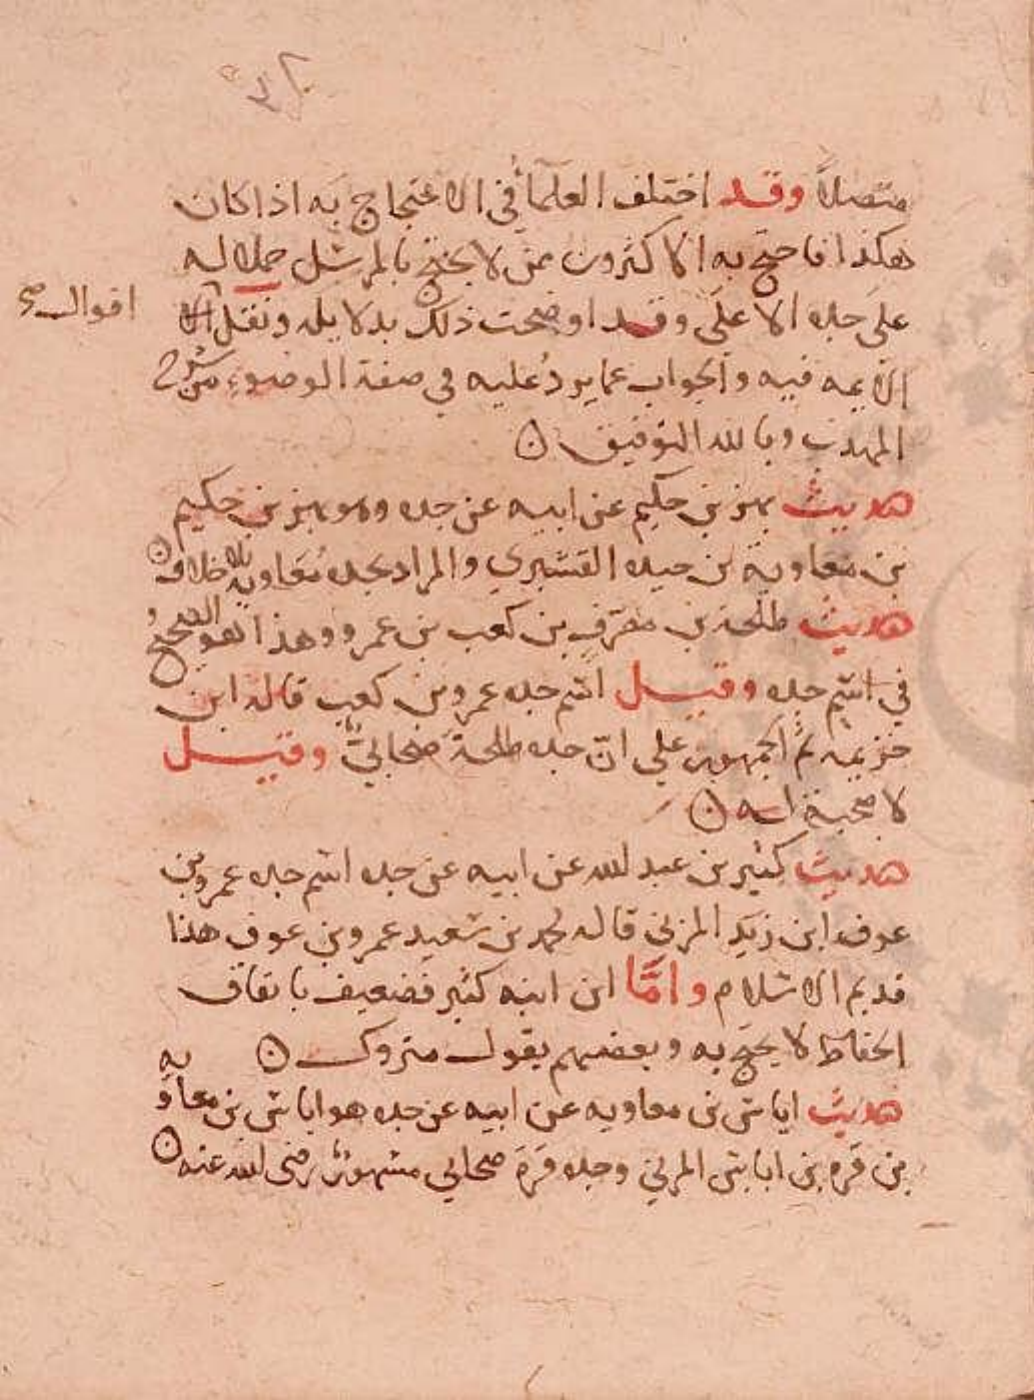 متصلا وقد اختلف العلمآء في الاحتجاج به اذا كان
هكذا فاحتج به الاكثرون ممن لا يحتج بالمرسل حملا له
على جده الاعلى وقد اوضحت ذلك بدلايله ونقل
اقوال صح
الايمه فيه والجواب عما يرد عليه في صفة الوضوء من شرح
المهذب وبالله التوفيق ن
حديث بهز بن حكيم عن ابيه عن جده وهو بهز بن حكيم
بن معاوية بن حيده القشيري والمراد بجده معاويه بلا خلاف ن
حديث طلحة بن مصرف بن كعب بن عمرو وهذا هو الصحيح
في اسم جده وقيل اسم جده عمرو بن كعب قاله ابن
خزيمه ثم الجمهور على ان جده طلحة صحابي وقيل
لا صحبة له ن
حديث كثير بن عبد الله عن ابيه عن جده اسم جده عمرو بن
عوف ابن زيد المزني قاله محمد بن سعيد عمرو بن عوف هذا
قديم الاسلام واما ابن ابنه كثير فضعيف باتفاق
الحفاظ لا يحتج به وبعضهم يقول متروك ن
حديث اياس بن معاويه عن ابيه عن جده هو اياس بن معاويه
بن قره بن اياس المزني وجده قرة صحابي مشهور رضي الله عنه ن